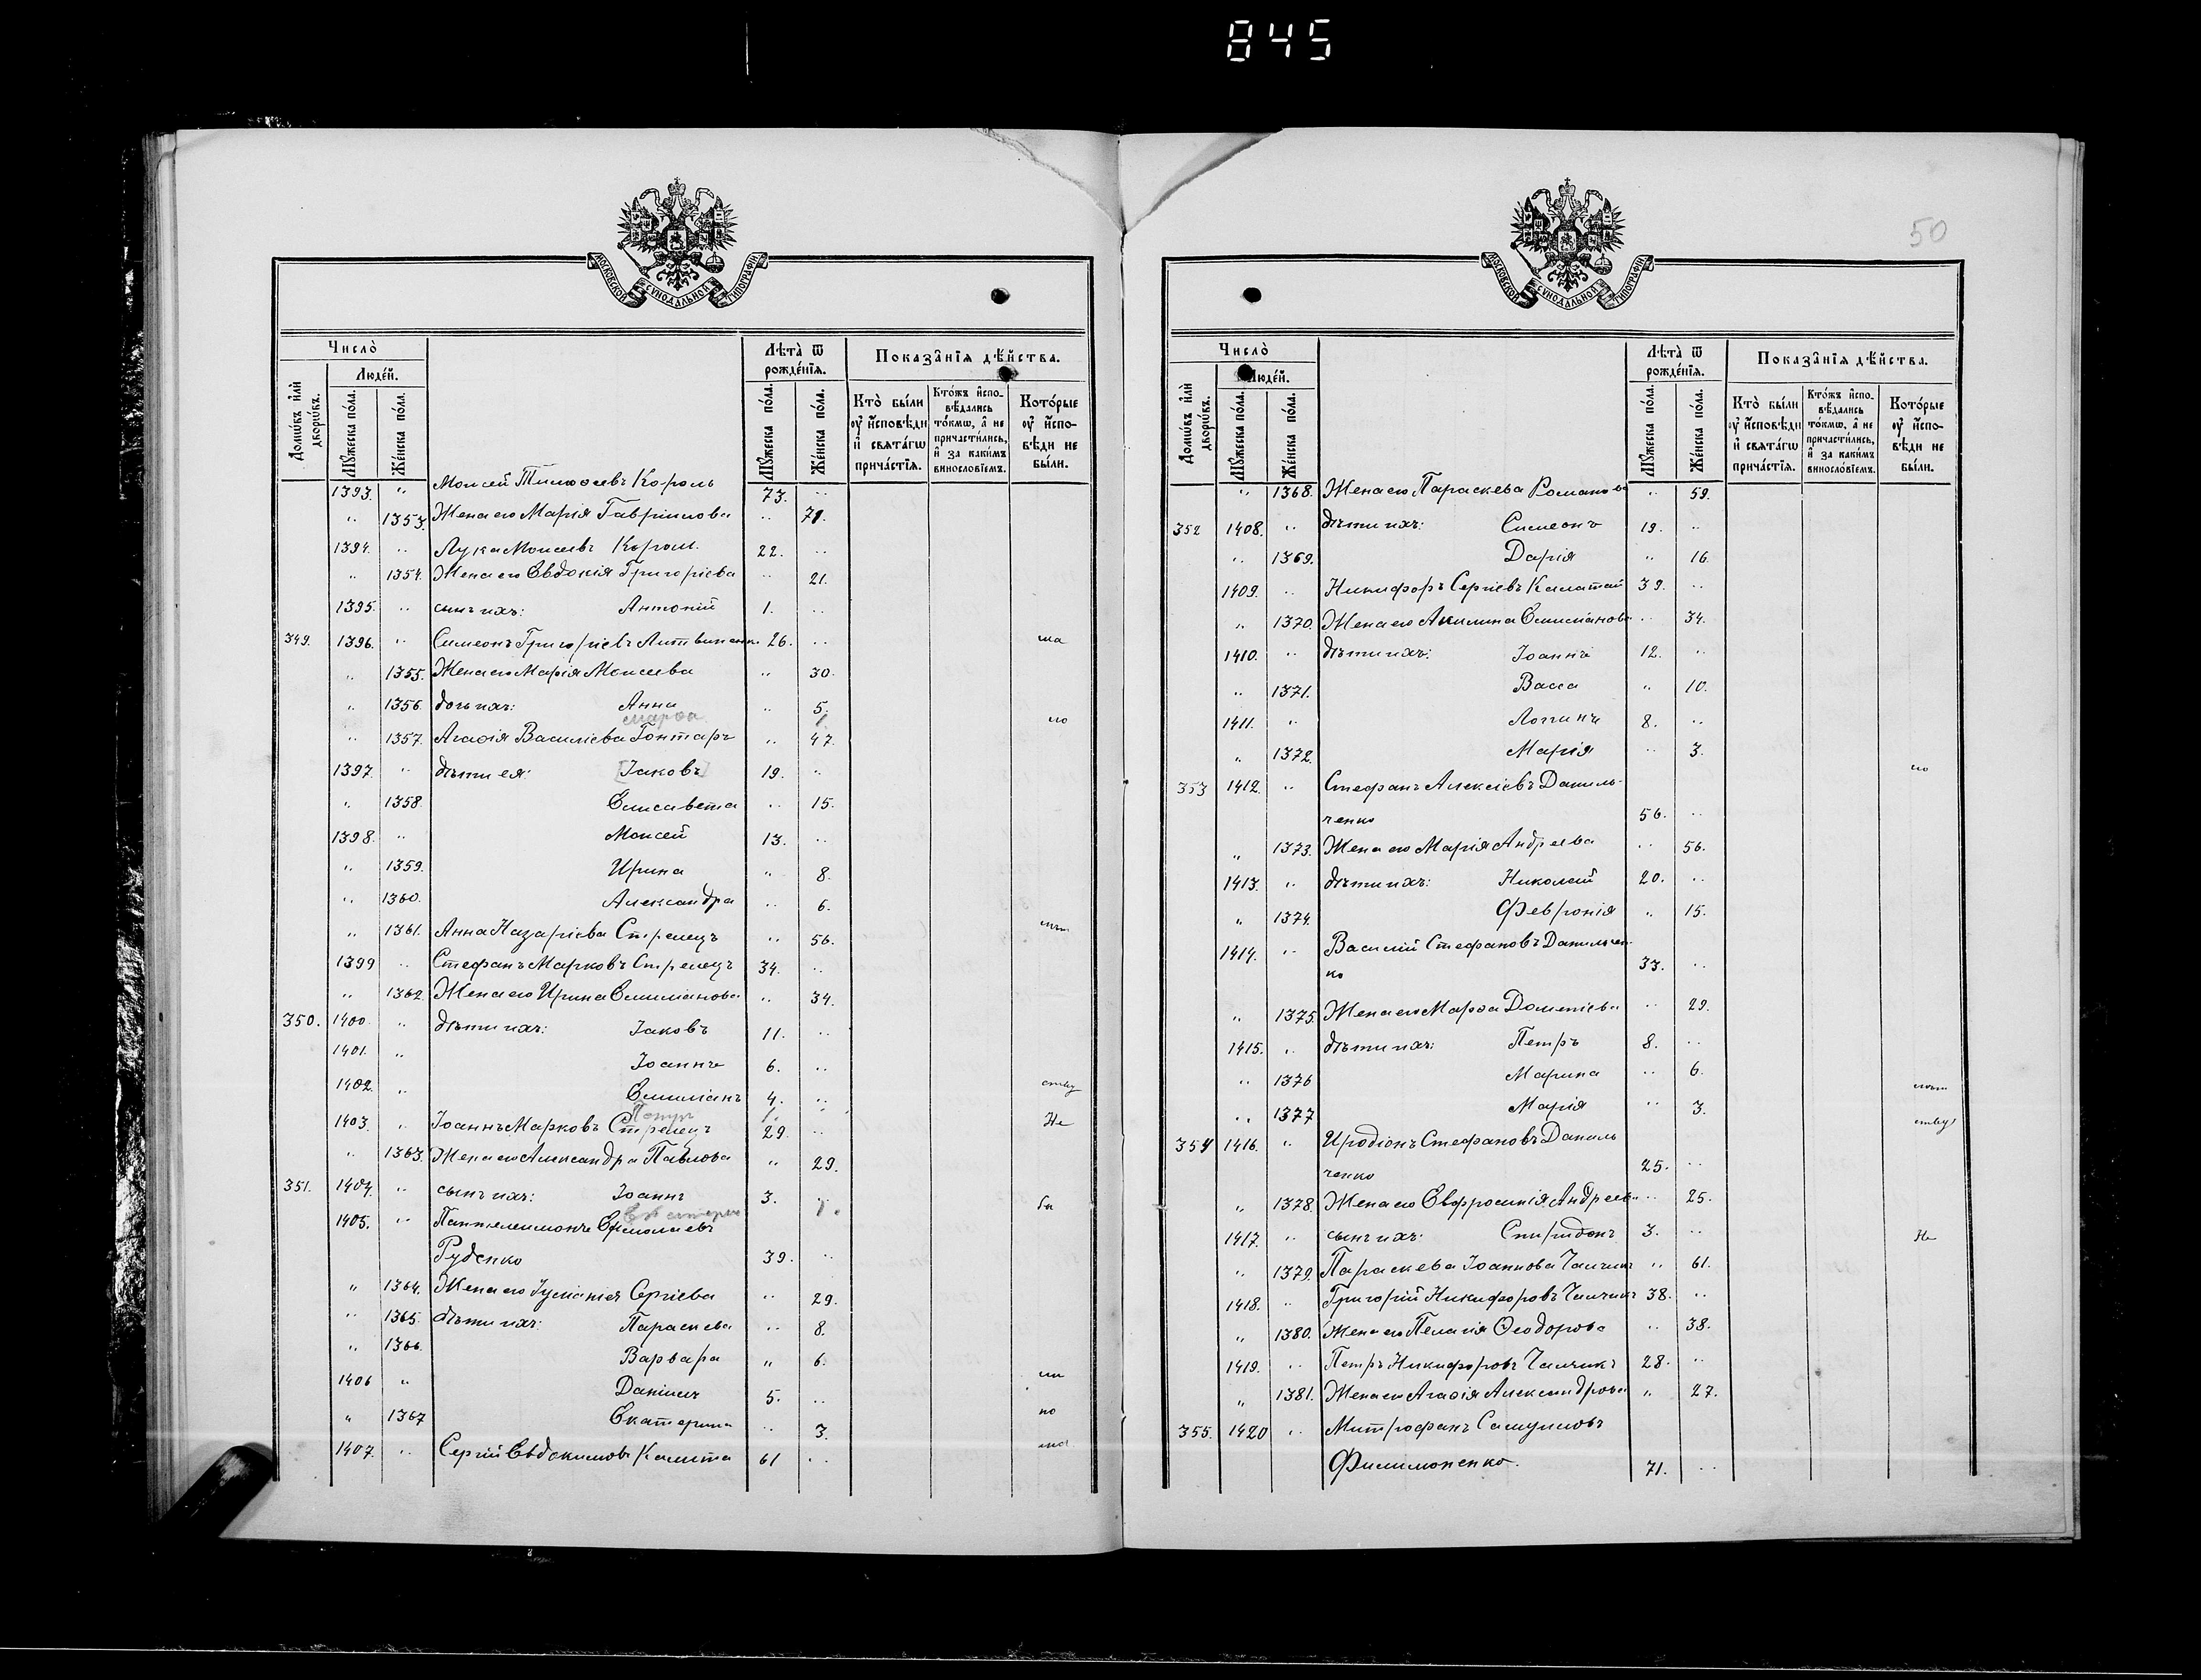 845
50
МОСКОВСКОЙ СУНОДАЛЬНОЙ ТИПОГРАФІИ
Число̀
Людéй.
Домѡ́въ и҆лѝ дворѡ́въ.
Мꙋ́жеска по́ла.
Же́нска по́ла.
Лѣ́та ѿ рожде́нїѧ.
Мꙋ́жеска по́ла.
Же́нска по́ла.
Показа̑нїѧ дѣ́йства.
Кто̀ бы́ли ᲂу҆ и҆сповѣ́ди и҆ свѧта́гѡ прича́стїѧ.
Кто́жъ и҆сповѣ́дались то́кмѡ, а҆ не причасти́лись, и҆ за каки́мъ винослόвїемъ.
Кото́рые ᲂу҆ и҆сповѣ́ди не бы́ли.
1393. " Моисей Тимоѳеевъ Король 73. "
" 1353. Жена его Марія Гавріилова " 71.
1394. " Лука Моисеевъ Король 22. "
" 1354. Жена его Евдокія Григоріева " 21.
1395. " сынъ ихъ: Антоній 1. "
349. 1396. " Симеонъ Григоріевъ Литвиненко 26. "
" 1355. Жена его Марія Моисеева " 30.
" 1356. дочь ихъ: Анна " 5.
Марѳа
" 1357. Агаѳія Василіева Гонтарь " 47.
1397. " дѣти ея: [Іаковъ] 19. "
" 1358. Елисавета " 15.
1398. " Моисей 13. "
" 1359. Ирина " 8.
" 1360. Александра " 6.
" 1361. Анна Назаріева Стрелецъ " 56.
1399 " Стефанъ Марковъ Стрелецъ 34. "
" 1362. Жена его Ирина Емиліанова " 34.
350. 1400. " дѣти ихъ: Іаковъ 11. "
1401. " Іоаннъ 6. "
1402. " Емиліанъ 4. "
1403. " Іоаннъ Марковъ Стрелецъ 29. " Не
" 1363. Жена его Александра Павлова " 29.
351. 1404. " сынъ ихъ: Іоаннъ 3. "
Екатерина
1405. " Пантелеимонъ Ермолаевъ
Руденко 39. "
" 1364. Жена его Іуліанія Сергіева " 29.
" 1365. дѣти ихъ: Параскева " 8.
" 1366. Варвара " 6.
1406 " Даніилъ 5. "
" 1367 Екатерина " 3.
1407. " Сергій Евдокимовъ Калита 61 "
МОСКОВСКОЙ СУНОДАЛЬНОЙ ТИПОГРАФІИ
Число̀
Людéй.
Домѡ́въ и҆лѝ дворѡ́въ.
Мꙋ́жеска по́ла.
Же́нска по́ла.
Лѣ́та ѿ рожде́нїѧ.
Мꙋ́жеска по́ла.
Же́нска по́ла.
Показа̑нїѧ дѣ́йства.
Кто̀ бы́ли ᲂу҆ и҆сповѣ́ди и҆ свѧта́гѡ прича́стїѧ.
Кто́жъ и҆сповѣ́дались то́кмѡ, а҆ не причасти́лись, и҆ за каки́мъ винослόвїемъ.
Кото́рые ᲂу҆ и҆сповѣ́ди не бы́ли.
" 1368. Жена его Параскева Романова " 59.
352 1408. " дѣти ихъ: Симеонъ 19. "
" 1369. Дарія " 16.
1409. " Никифоръ Сергіевъ 39. "
" 1370. Жена его Акилина Емиліанова " 34.
1410. " дѣти ихъ: Іоаннъ 12. "
" 1371. Васса " 10.
1411. " Логгинъ 8. "
" 1372. Марія " 3.
353 1412. " Стефанъ Алексіевъ Даниль-
ченко 56. "
" 1373. Жена его Марія Андреева " 56.
1413. " дѣти ихъ: Николай 20. "
" 1374. Февронія " 15.
1414. " Василій Стефановъ Данильчен-
ко 33. "
" 1375. Жена его Марѳа Дометіева " 29.
1415. " дѣти ихъ: Петръ 8. "
" 1376 Марина " 6.
" 1377 Марія " 3.
354 1416. " Иродіонъ Стефановъ Даниль
ченко 25. "
" 1378. Жена его Евфросинія Андреева " 25.
1417. " сынъ ихъ: Спиридонъ 3. " Не
" 1379. Параскева Іоаннова " 61.
1418. " Григорій Никифоровъ 38. "
" 1380. Жена его Пелагія Ѳеодорова " 38.
1419. " Петръ Никифоровъ 28. "
" 1381. Жена его Агаѳія Александрова " 27.
355. 1420 " Митрофанъ Самуиловъ
Филимоненко. 71. "